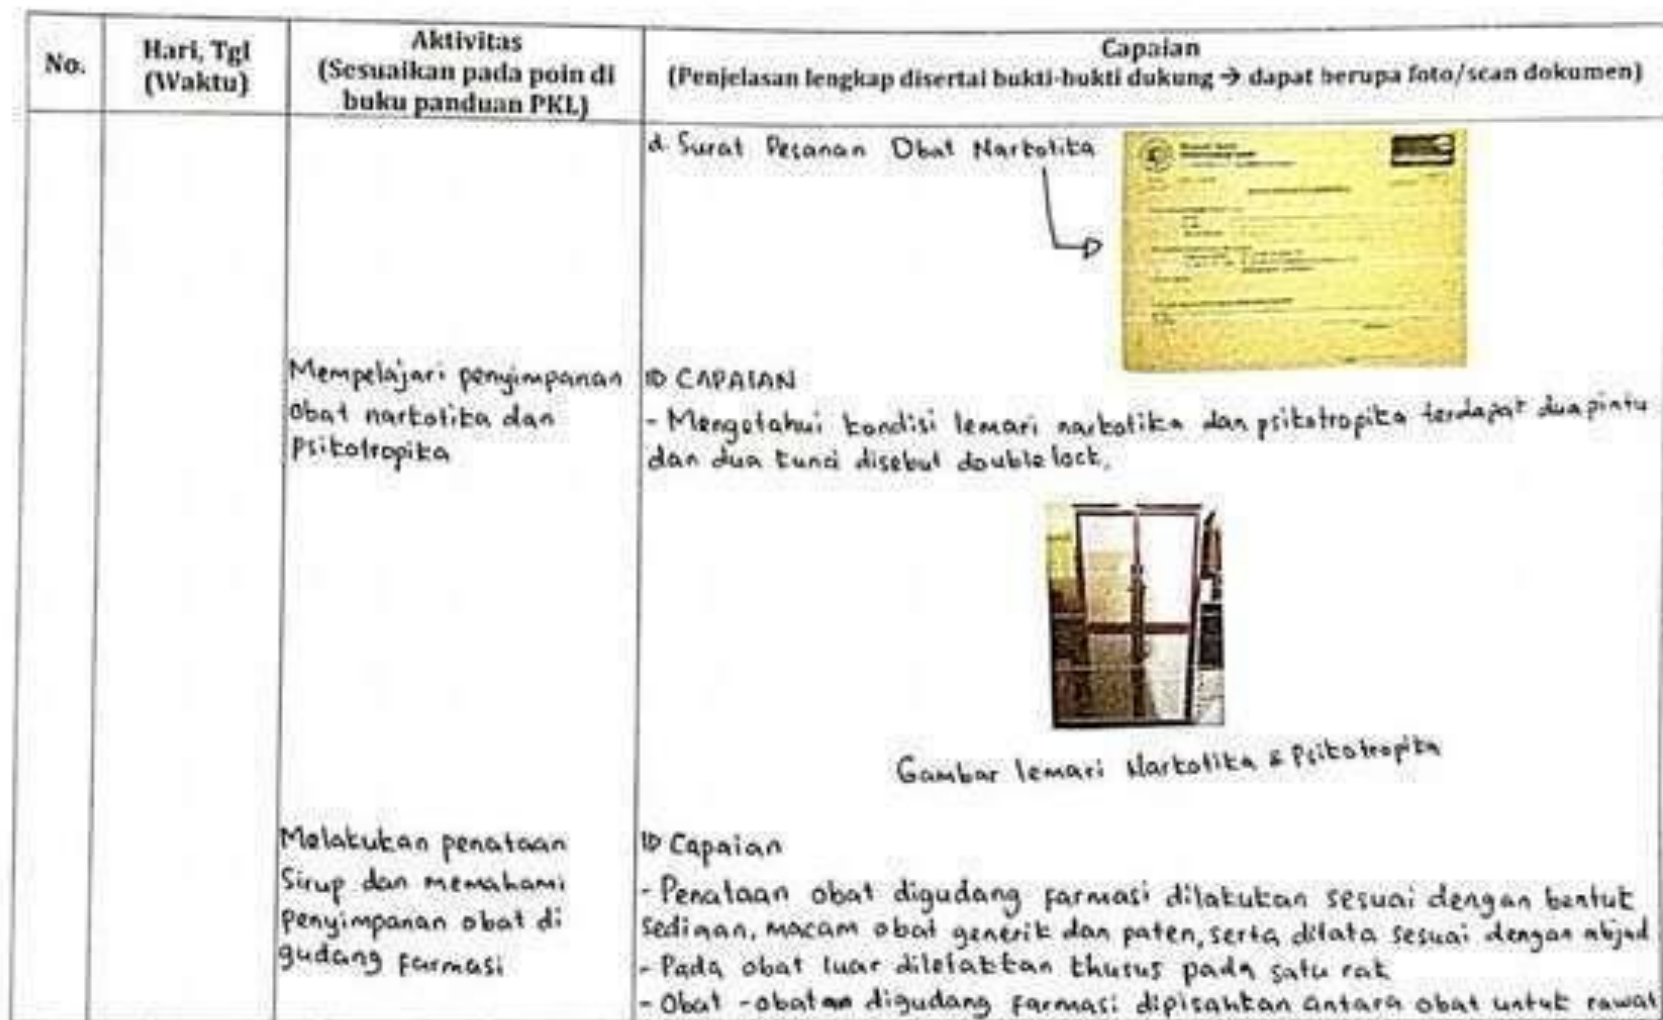 No.
Hari, Tgl
(Waktu)
Aktivitas
(Sesuaikan pada poin di
buku panduan PKL)
Capaian
(Penjelasan lengkap disertai bukti-bukti dukung → dapat berupa foto/scan dokumen)
d. Surat Pesanan Obat Narkotika
Mempelajari penyimpanan
obat narkotika dan
Psikotropika
CAPAIAN
- Mengetahui kondisi lemari narkotika dan psikotropika terdapat dua pintu
dan dua kunci disebut double lock.
Gambar lemari Narkotika & Psikotropika
Melakukan penataan
Sirup dan memahami
penyimpanan obat di
gudang farmasi
Capaian
- Penataan obat digudang farmasi dilakukan sesuai dengan bentuk
sediaan, macam obat generik dan paten, serta ditata sesuai dengan abjad
- Pada obat luar diletakkan khusus pada satu rak
- Obat -obatan digudang farmasi dipisahkan antara obat untuk rawat